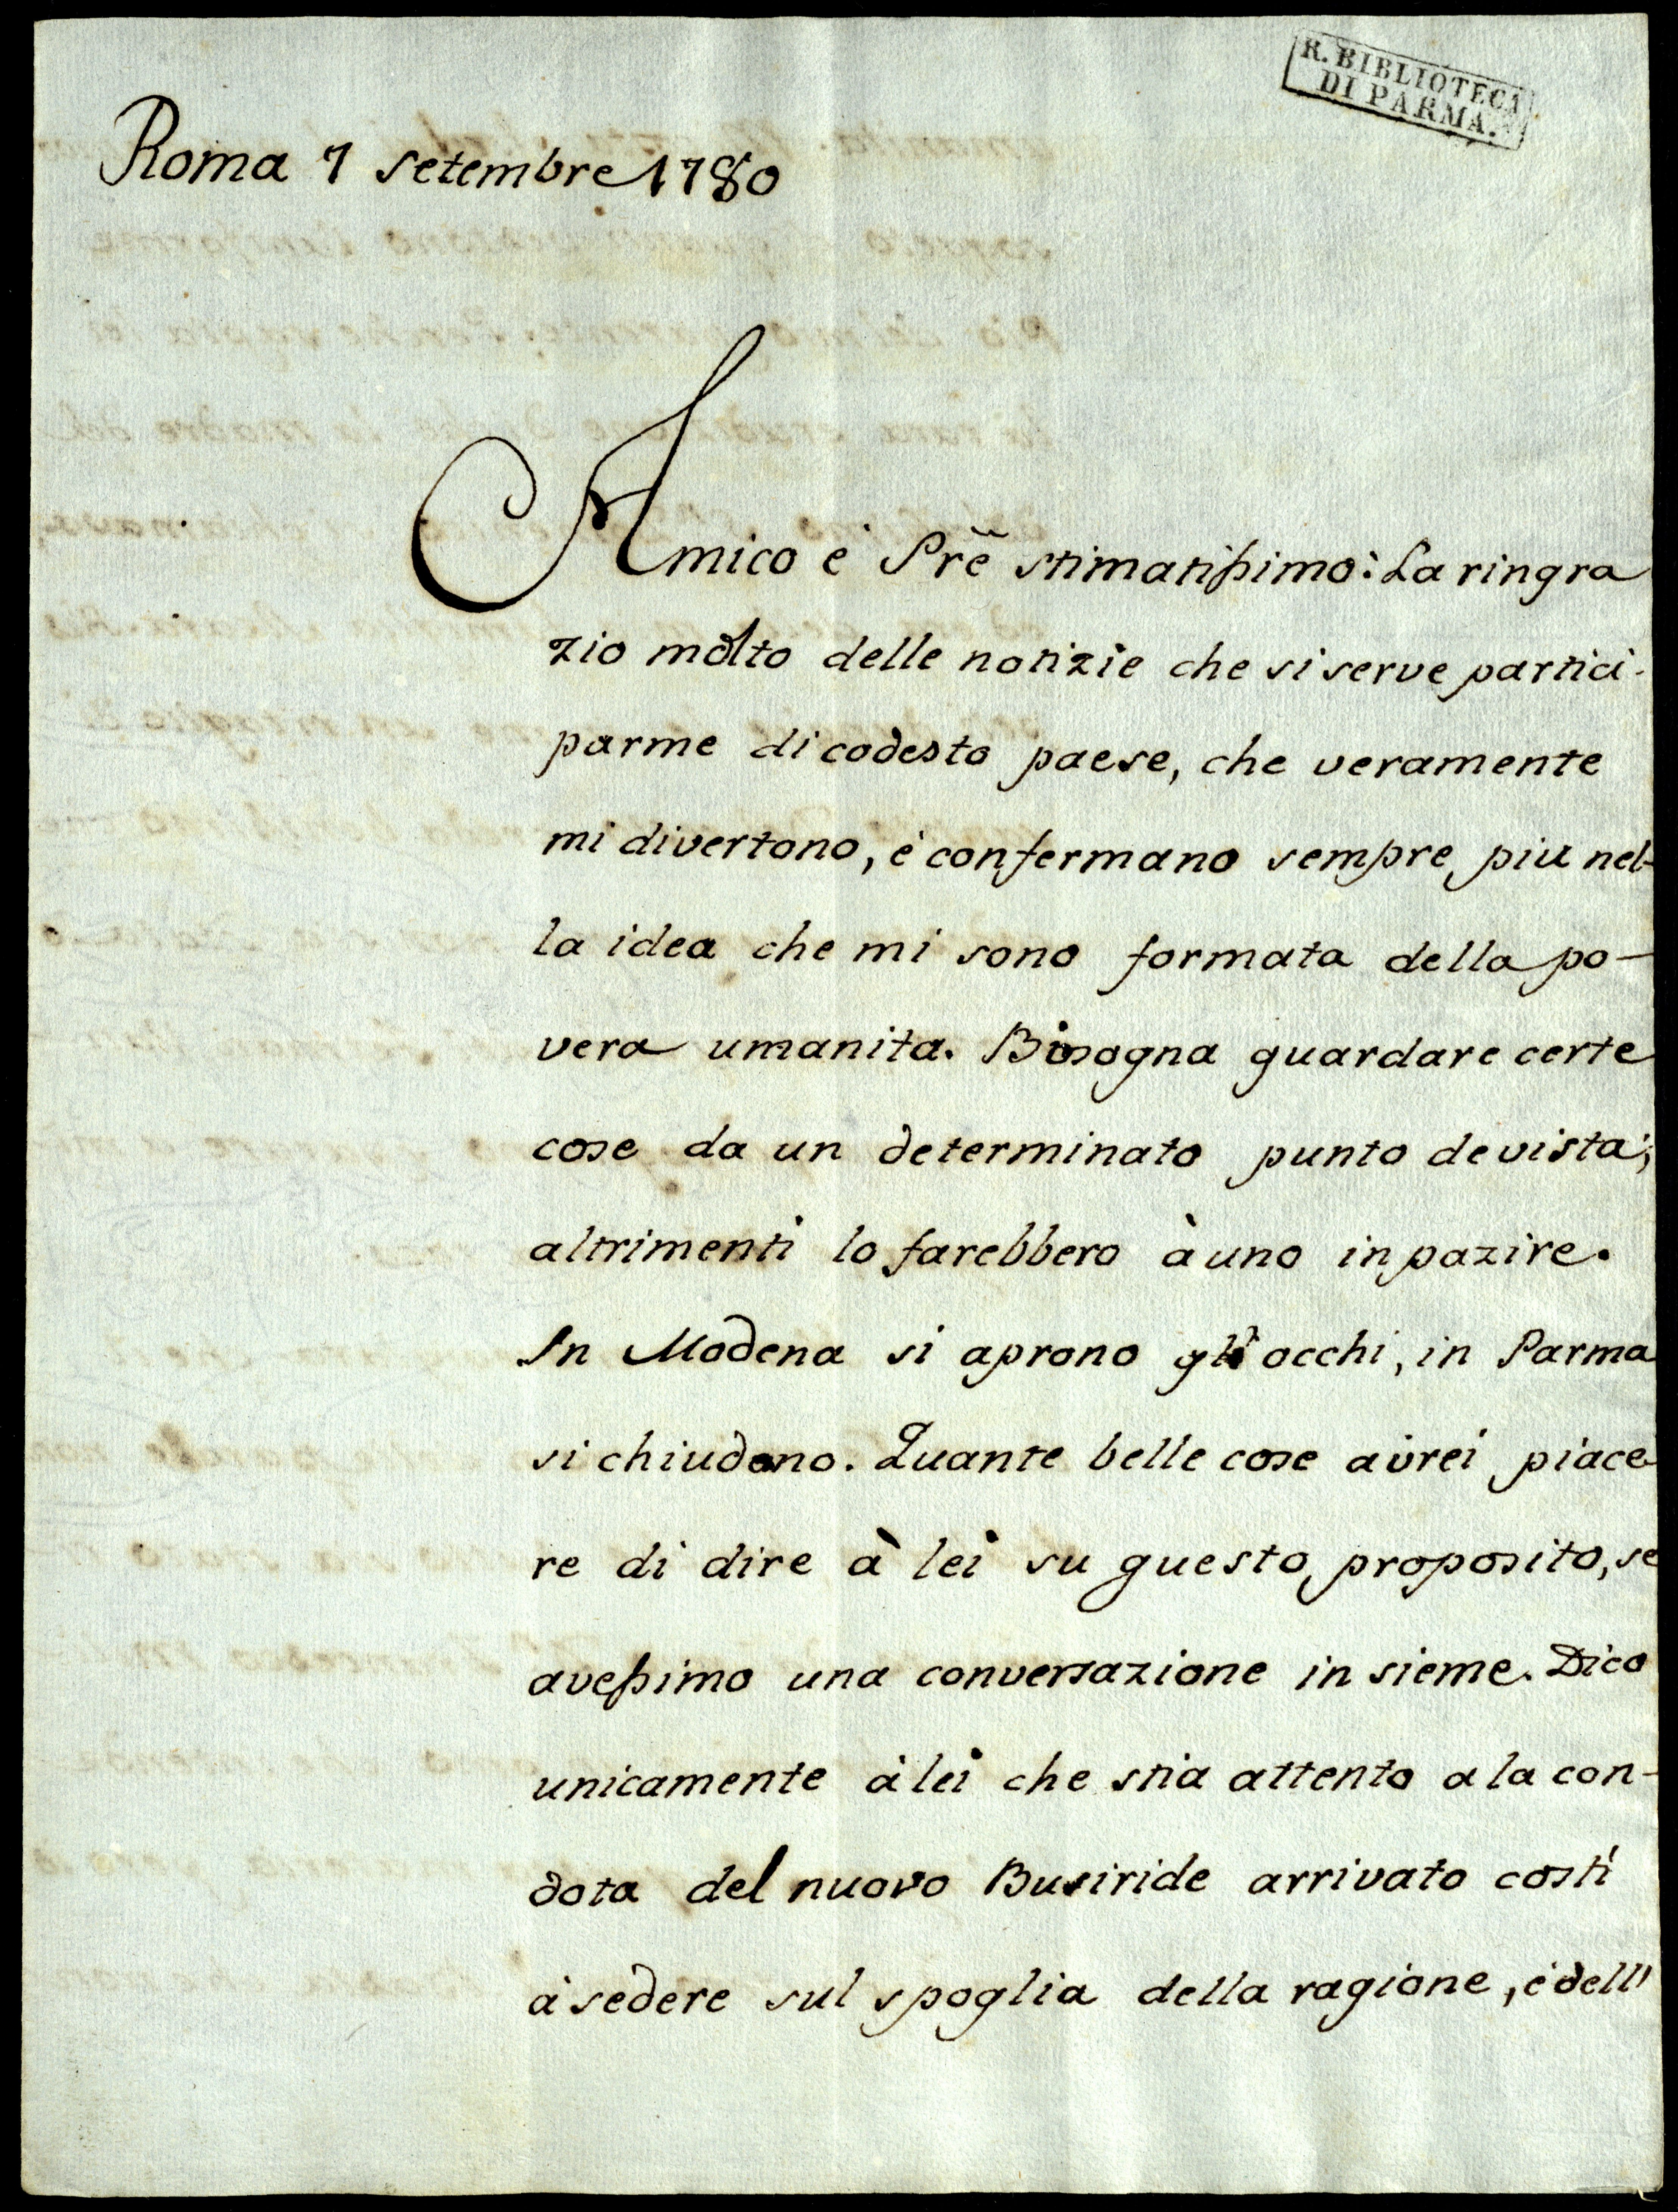 R. BIBLIOTECA
DI PARMA.
Roma 7 setembre 1780
Amico e' Prẽ stimatissimo: La ringra
zio molto delle notizie che si serve partici-
parme di codesto paese, che veramente
mi divertono, e' confermano sempre piu nel-
la idea che mi sono formata della po-
vera umanita. Bisogna guardare certe
cose da un determinato punto de vista;
altrimenti lo farebbero à uno inpazire.
In Modena si aprono gli occhi, in Parma
si chiudono. Quante belle cose avrei piace-
re di dire à lei su questo proposito, se
avessimo una conversazione in sieme. Dico
unicamente à lei che stia attento a la con-
dota del nuovo Busiride arrivato costi
à sedere sul spoglia della ragione, e' dell'